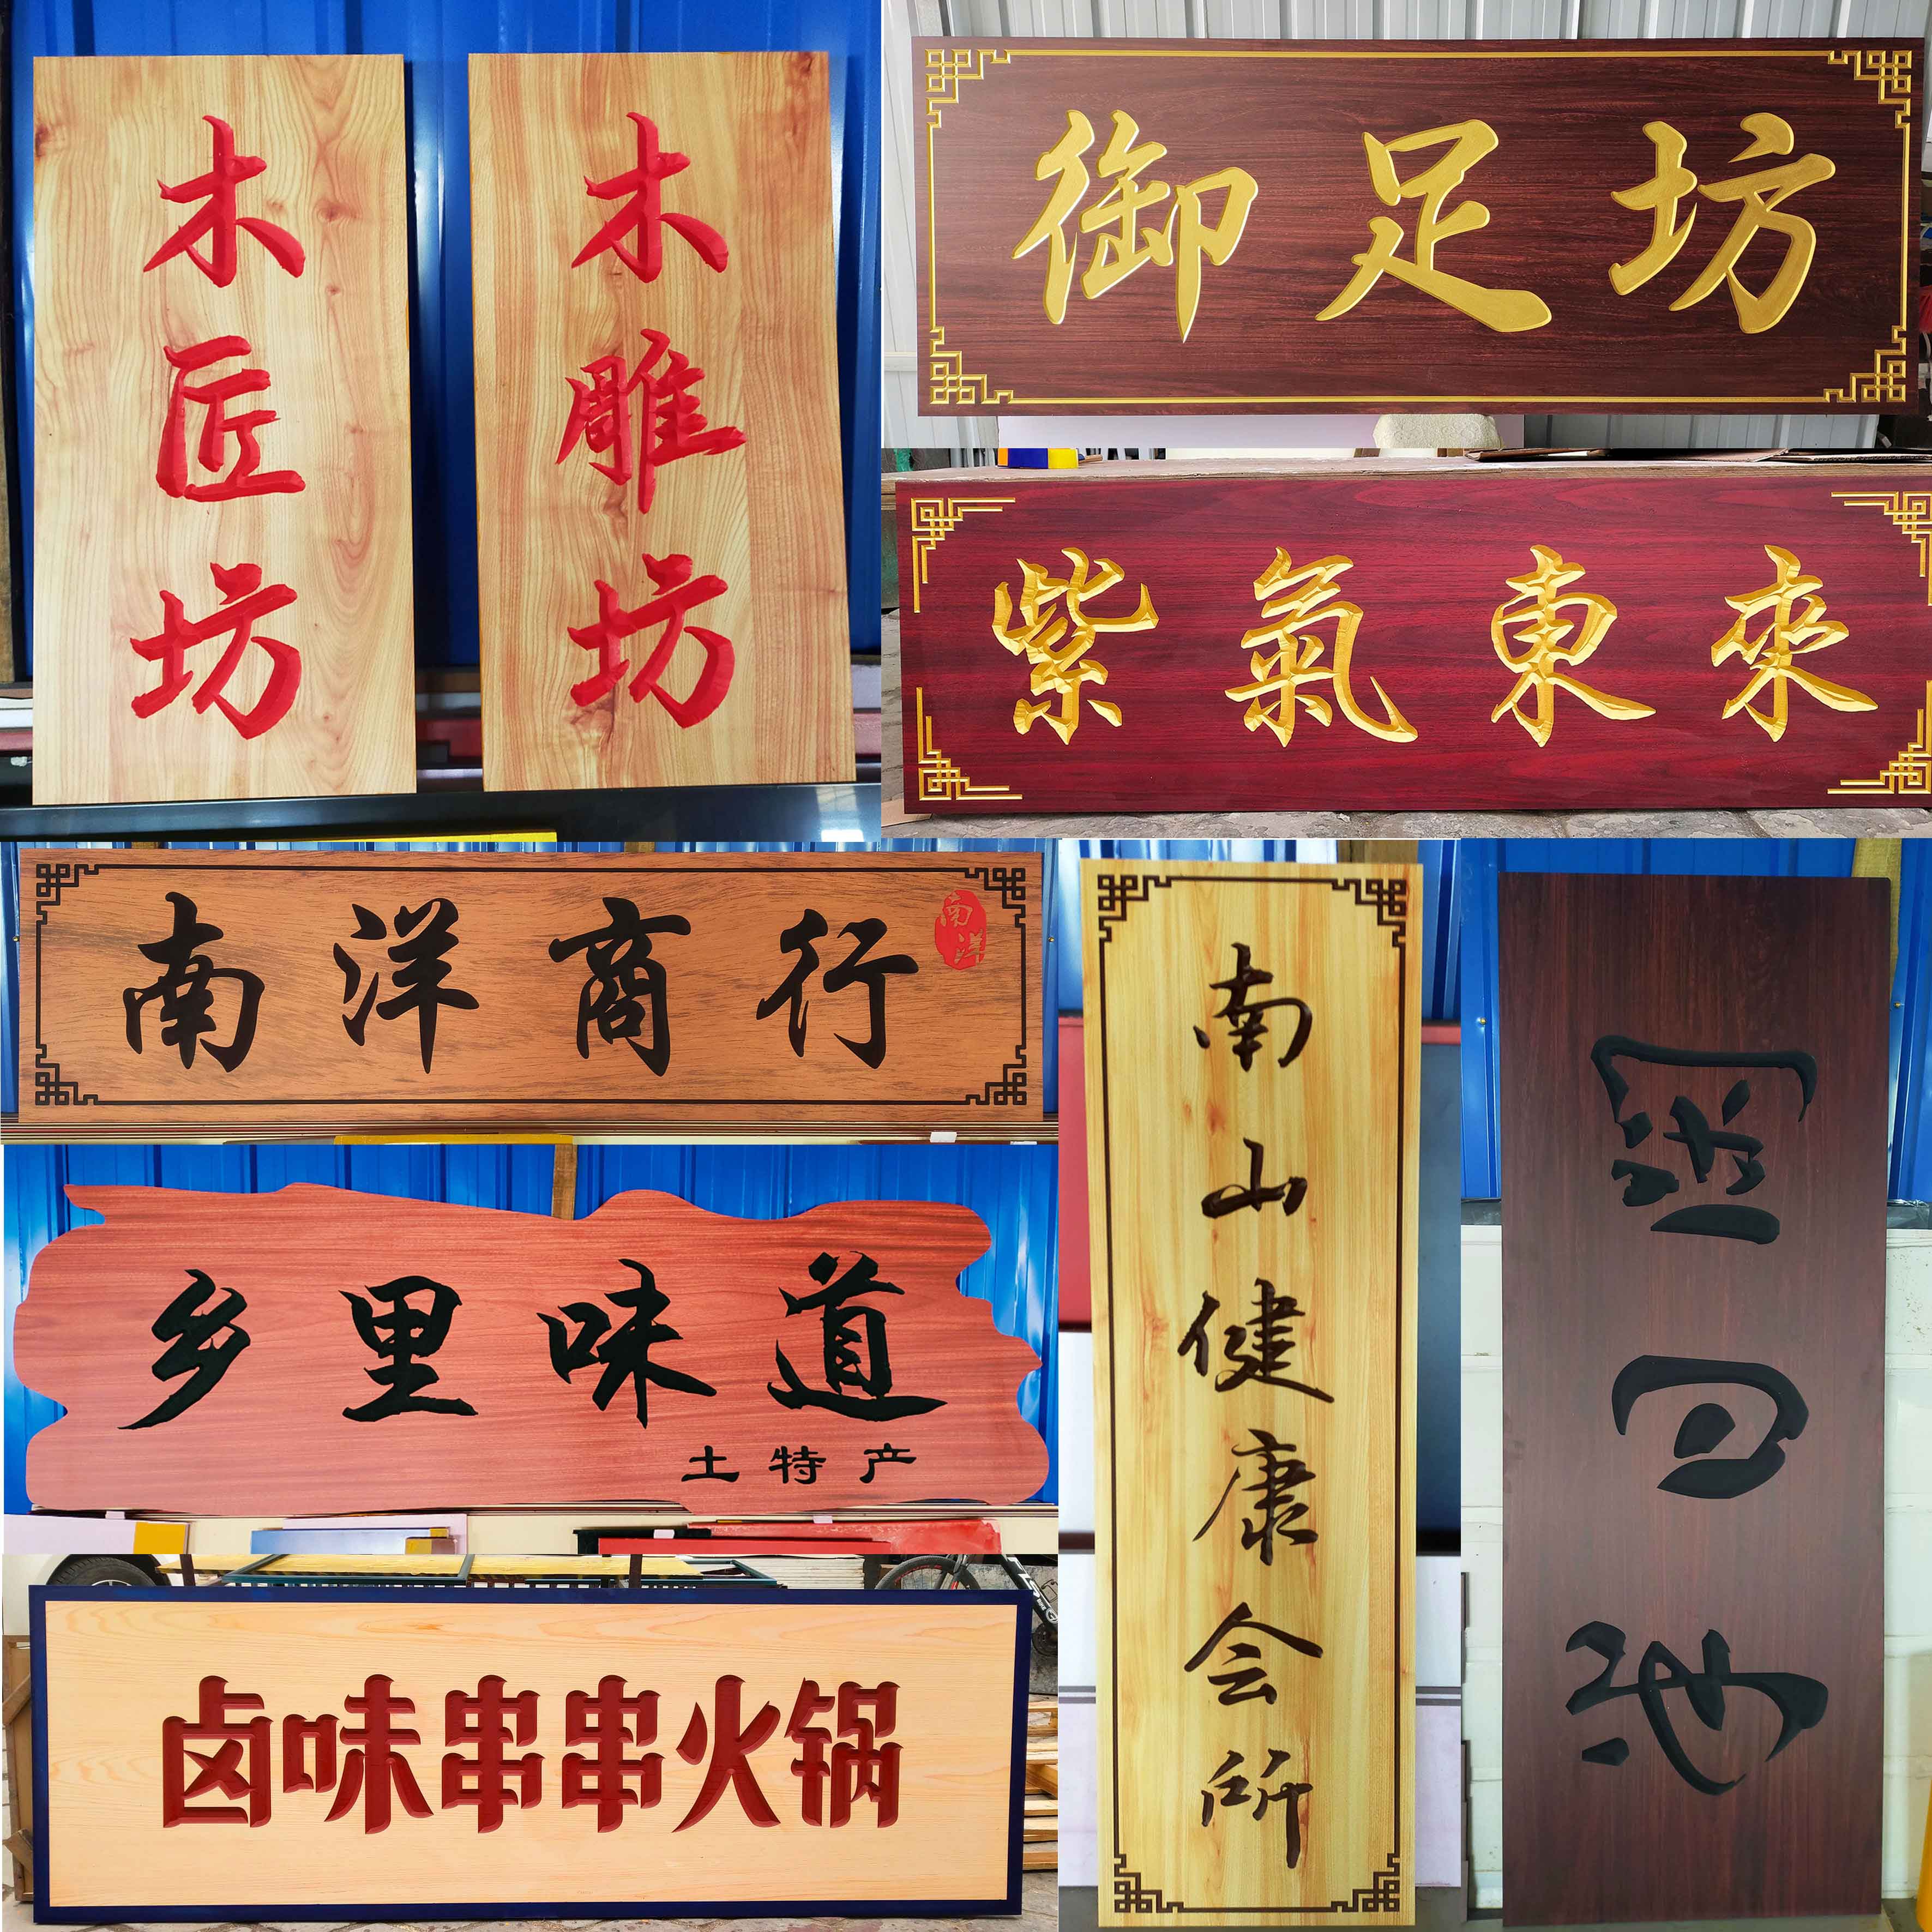 木匠坊
木雕坊
御足坊
紫氣東來
南洋商行
南洋
乡里味道
土特产
卤味串串火锅
南山健康会所
墨日池